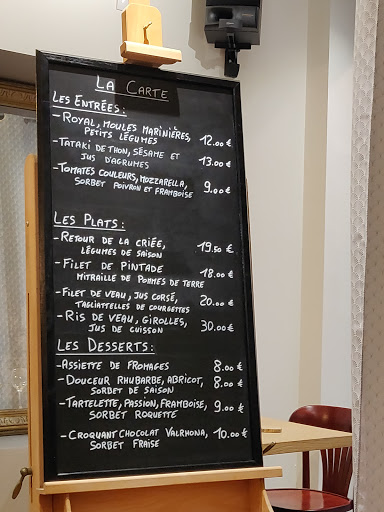 LA CARTE
LES ENTRÉES:
- ROYAL, MOULES MARINIÈRES, 12.00 €
PETITS LÉGUMES
- TATAKI DE THON, SÉSAME ET 13.00 €
JUS D'AGRUMES
- TOMATES COULEURS, MOZZARELLA, 9.00 €
SORBET POIVRON ET FRAMBOISE
LES PLATS:
- RETOUR DE LA CRIÉE, 19.50 €
LÉGUMES DE SAISON
- FILET DE PINTADE 18.00 €
MITRAILLE DE POMMES DE TERRE
- FILET DE VEAU, JUS CORSÉ, 20.00 €
TAGLIATTELLES DE COURGETTES
- RIS DE VEAU, GIROLLES, 30.00 €
JUS DE CUISSON
LES DESSERTS:
- ASSIETTE DE FROMAGES 8.00 €
- DOUCEUR RHUBARBE, ABRICOT, 8.00 €
SORBET DE SAISON
- TARTELETTE, PASSION, FRAMBOISE, 9.00 €
SORBET ROQUETTE
- CROQUANT CHOCOLAT VALRHONA, 10.00 €
SORBET FRAISE